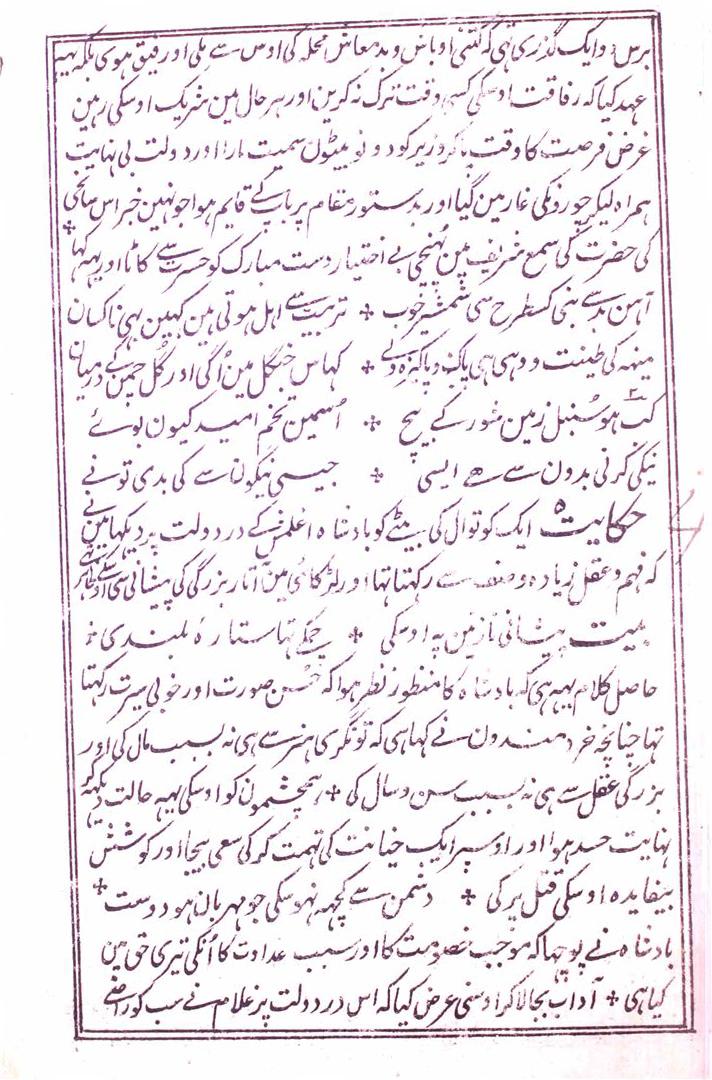 برس دو ایک گذری تھی کہ کتنی اوباش و بدمعاش محلہ کی اوس سے ملی اور رفیق ہوی بلکہ یہہ
عہد کیا کہ رفاقت اوسکی کسی وقت ترک نہ کرین اور ہر حال مین شریک اوسکی رہین
غرض فرصت کا وقت پاکر وزیر کو دونو بیٹون سمیت مارا اور دولت بی نہایت
ہمراہ لیکر چورونکی غار مین گیا اور بدستور مقام پر باپ کے قایم ہوا جونہین خبر اس سانحی
کی حضرت کی سمع شریف مین پُہنچی بے اختیار دست مبارک کو حسرت سے کاٹا اور یہہ کہا
آہن بد سے بنی کسطرح سی شمشیر خوب ٭ تربیت سے اہل ہوتی مین کہین بہی ناکسان
مینہہ کی طینت وو ہی ہی پاک و پاکیزہ ولے ٭ گہاس جنگل مین اُگی اور گُل چمن کے درمیان
کب ہو سُنبل زمین شور کے بیچ ٭ اُسمین تخم امید کیون بوئے
نیکی کرنی بدون سے ہے ایسی ٭ جیسی نیکون سے کی بدی تو نے
حکایت ۵ ایک کوتوال کی بیٹے کو بادشاہ اغلمش کے در دولت پر دیکہا مین نے
کہ فہم و عقل زیادہ وصف سے رکہتا تہا اور لڑکائی مین آثار بزرگی کی پیشانی سی اوسکے ظاہر تہے
بیت پیشانی نازنین پہ اوسکی ٭ چمکے تہا ستارۂ بلندی
حاصل کلام یہہ ہی کہ بادشاہ کا منظور نظر ہوا کہ حُسن صورت اور خوبی سیرت رکہتا
تہا چنانچہ خردمندون نے کہا ہی کہ تونگری ہنر سے ہی نہ بسبب مال کی اور
بزرگی عقل سے ہی نہ بسبب سن و سال کی ٭ ہمچشمون کو اوسکی یہہ حالت دیکہہ کر
نہایت حسد ہوا اور اوسپر ایک خیانت کی تہمت کر کی سعی بیجا اور کوشش
بیفایدہ اوسکی قتل پر کی ٭ دشمن سے کچہہ نہو سکی جو مہربان ہو دوست ٭
بادشاہ نے پوچہا کہ موجب خصومت کا اور سبب عداوت کا اُنکی تیری حق مین
کیا ہی ٭ آداب بجا لا کر اوسنی عرض کیا کہ اس در دولت پر غلام نے سب کو راضے